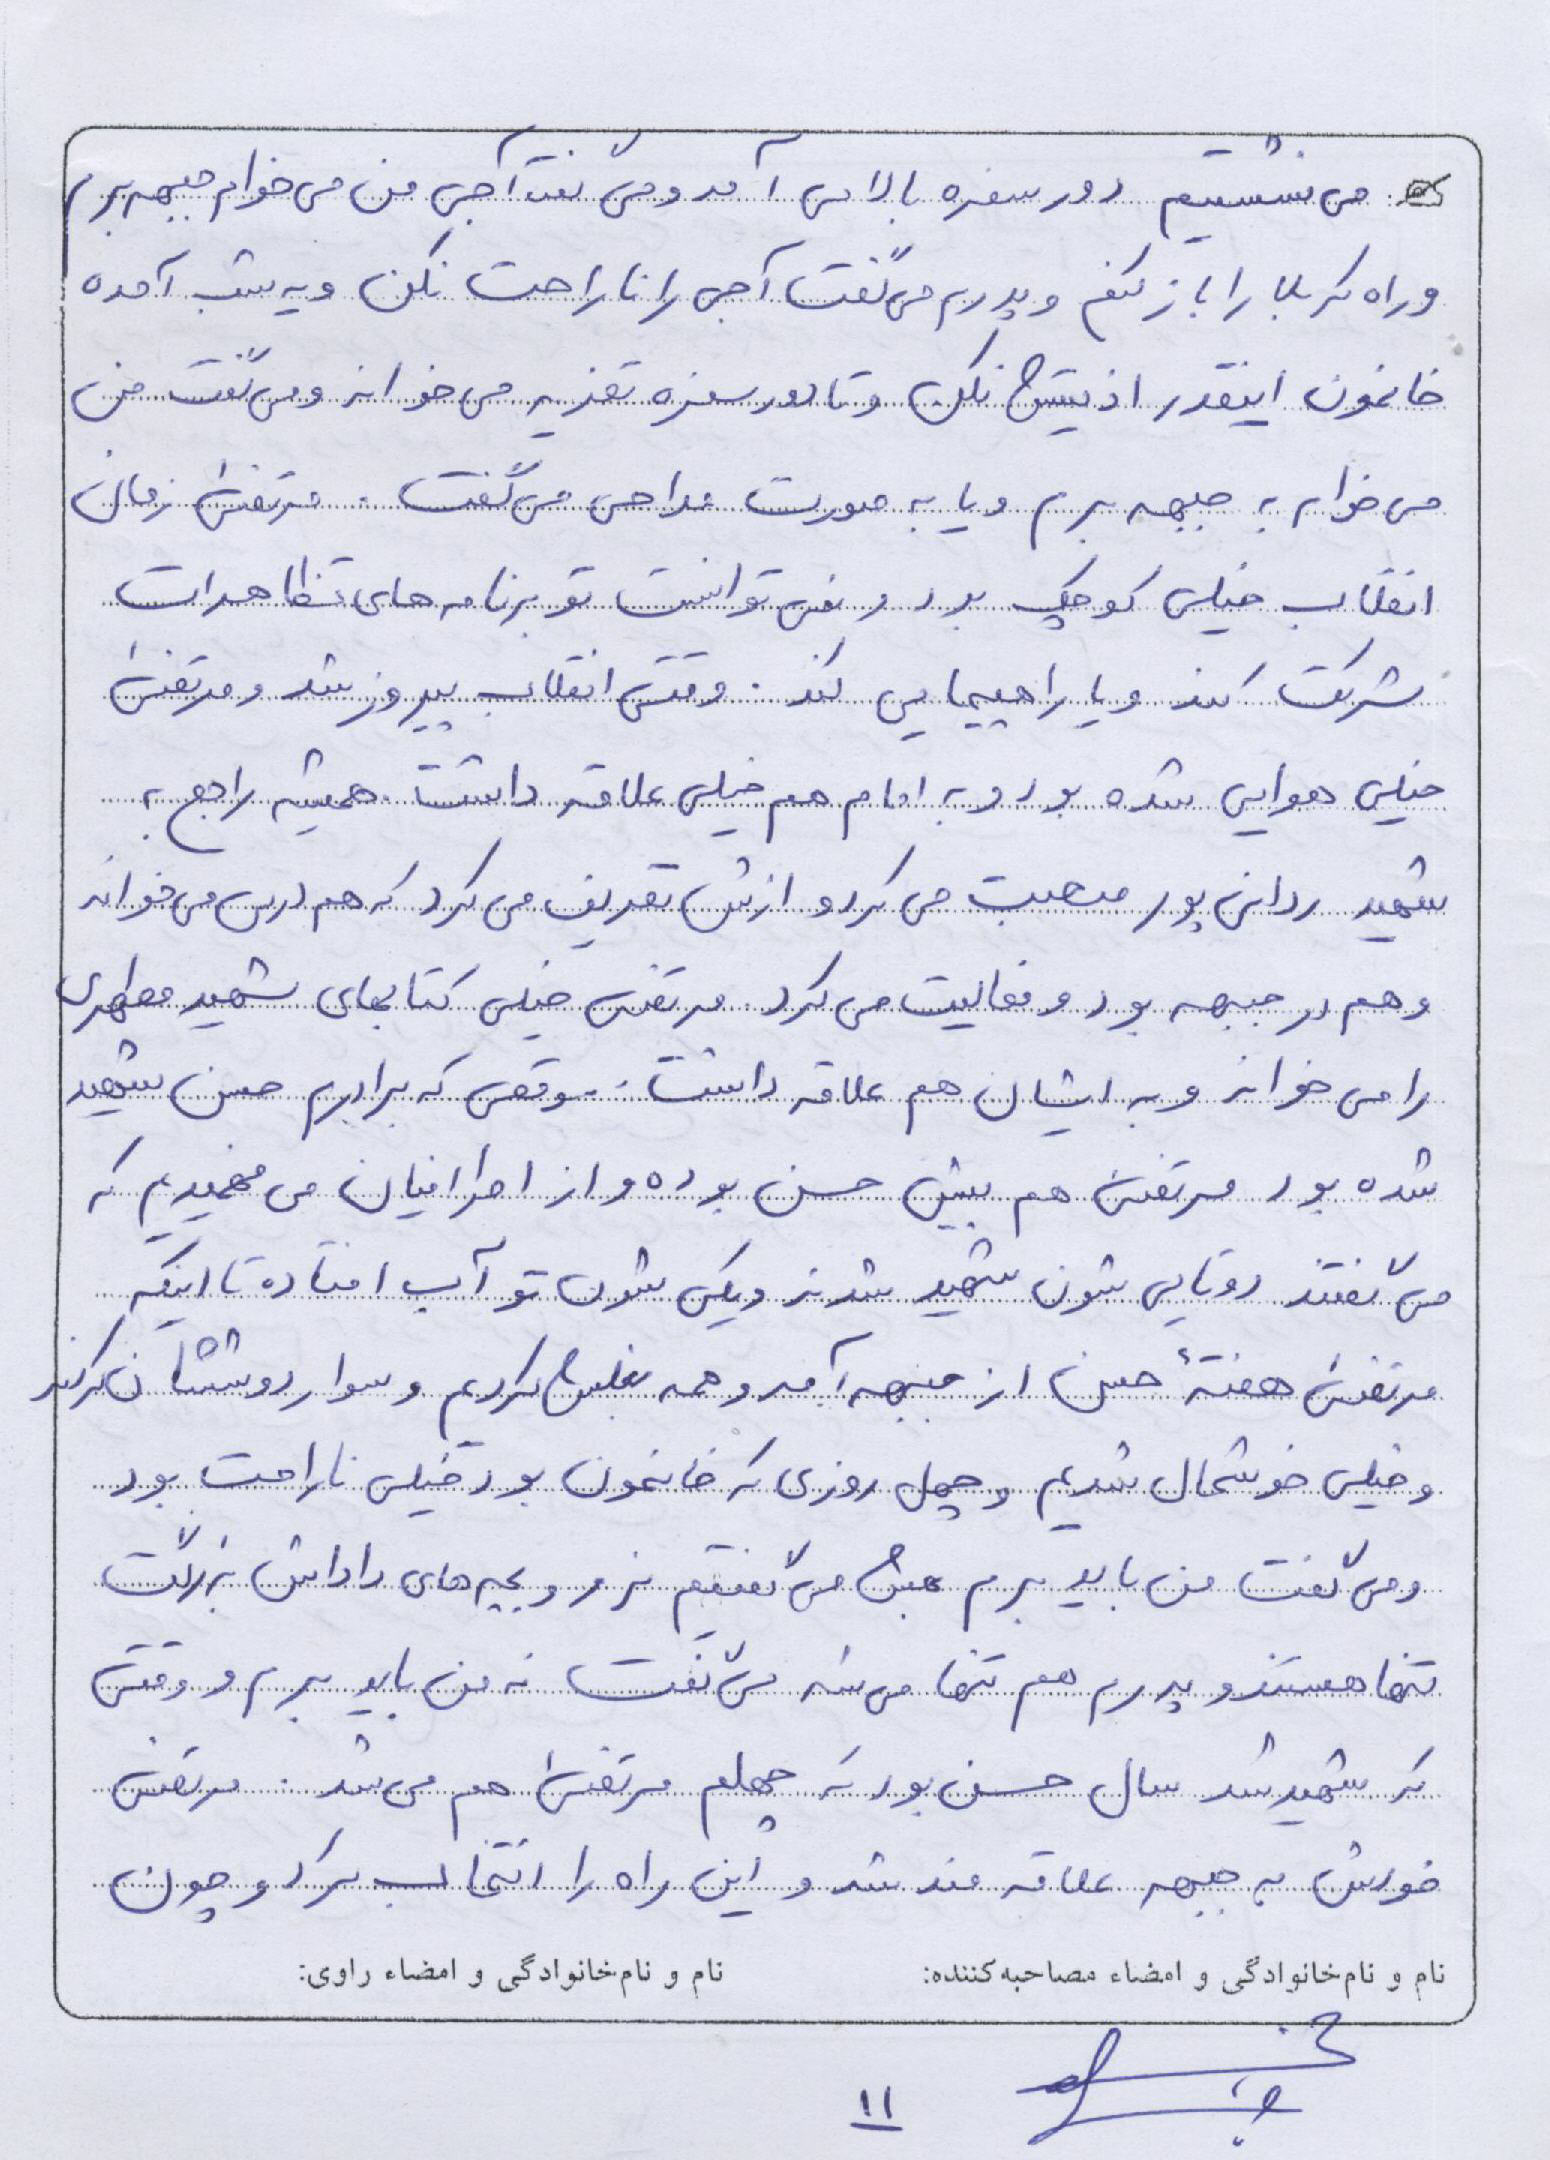 می نشستیم دور سفره بالا می آمد و می گفت آجی من می خوام جبهه برم
و راه کربلا را باز کنم و پدرم می گفت آجی را ناراحت نکن و یه شب آمده
خانمون اینقدر اذیتش نکن و تا دور سفره تعزیه می خواند و می گفت من
می خوام به جبهه برم و یا به صورت مداحی می گفت . مرتضی زمان
انقلاب خیلی کوچک بود و نمی توانست تو برنامه های تظاهرات
شرکت کند و یا راهپیمایی کند . وقتی انقلاب پیروز شد و مرتضی
خیلی هوایی شده بود و به امام هم خیلی علاقه داشت . همیشه راجع به
شهید ردانی پور صحبت می کرد و ازش تعریف می کرد که هم درس می خواند
و هم در جبهه بود و فعالیت می کرد . مرتضی خیلی کتابهای شهید مطهری
را می خواند و به ایشان هم علاقه داشت . موقعی که برادرم حسن شهید
شده بود مرتضی هم پیش حسن بوده و از اطرافیان می فهمیدیم که
می گفتند دوتایی شون شهید شدند و یکی شون تو آب افتاده تا اینکه
مرتضی هفتهٔ حسن از جبهه آمد و همه بغلش کردیم و سوار دوششان کردند
و خیلی خوشحال شدیم و چهل روزی که خانمون بود خیلی ناراحت بود
و می گفت من باید برم بهش می گفتیم نرو و بچه های داداش بزرگت
تنها هستند و پدرم هم تنها می شه می گفت نه من باید برم و وقتی
که شهید شد سال حسن بود که چهلم مرتضی هم می شد . مرتضی
خودش به جبهه علاقه مند شد و این راه را انتخاب کرد و چون
نام و نام‌خانوادگی و امضاء مصاحبه‌کننده: نام و نام‌خانوادگی و امضاء راوی:
۱۱